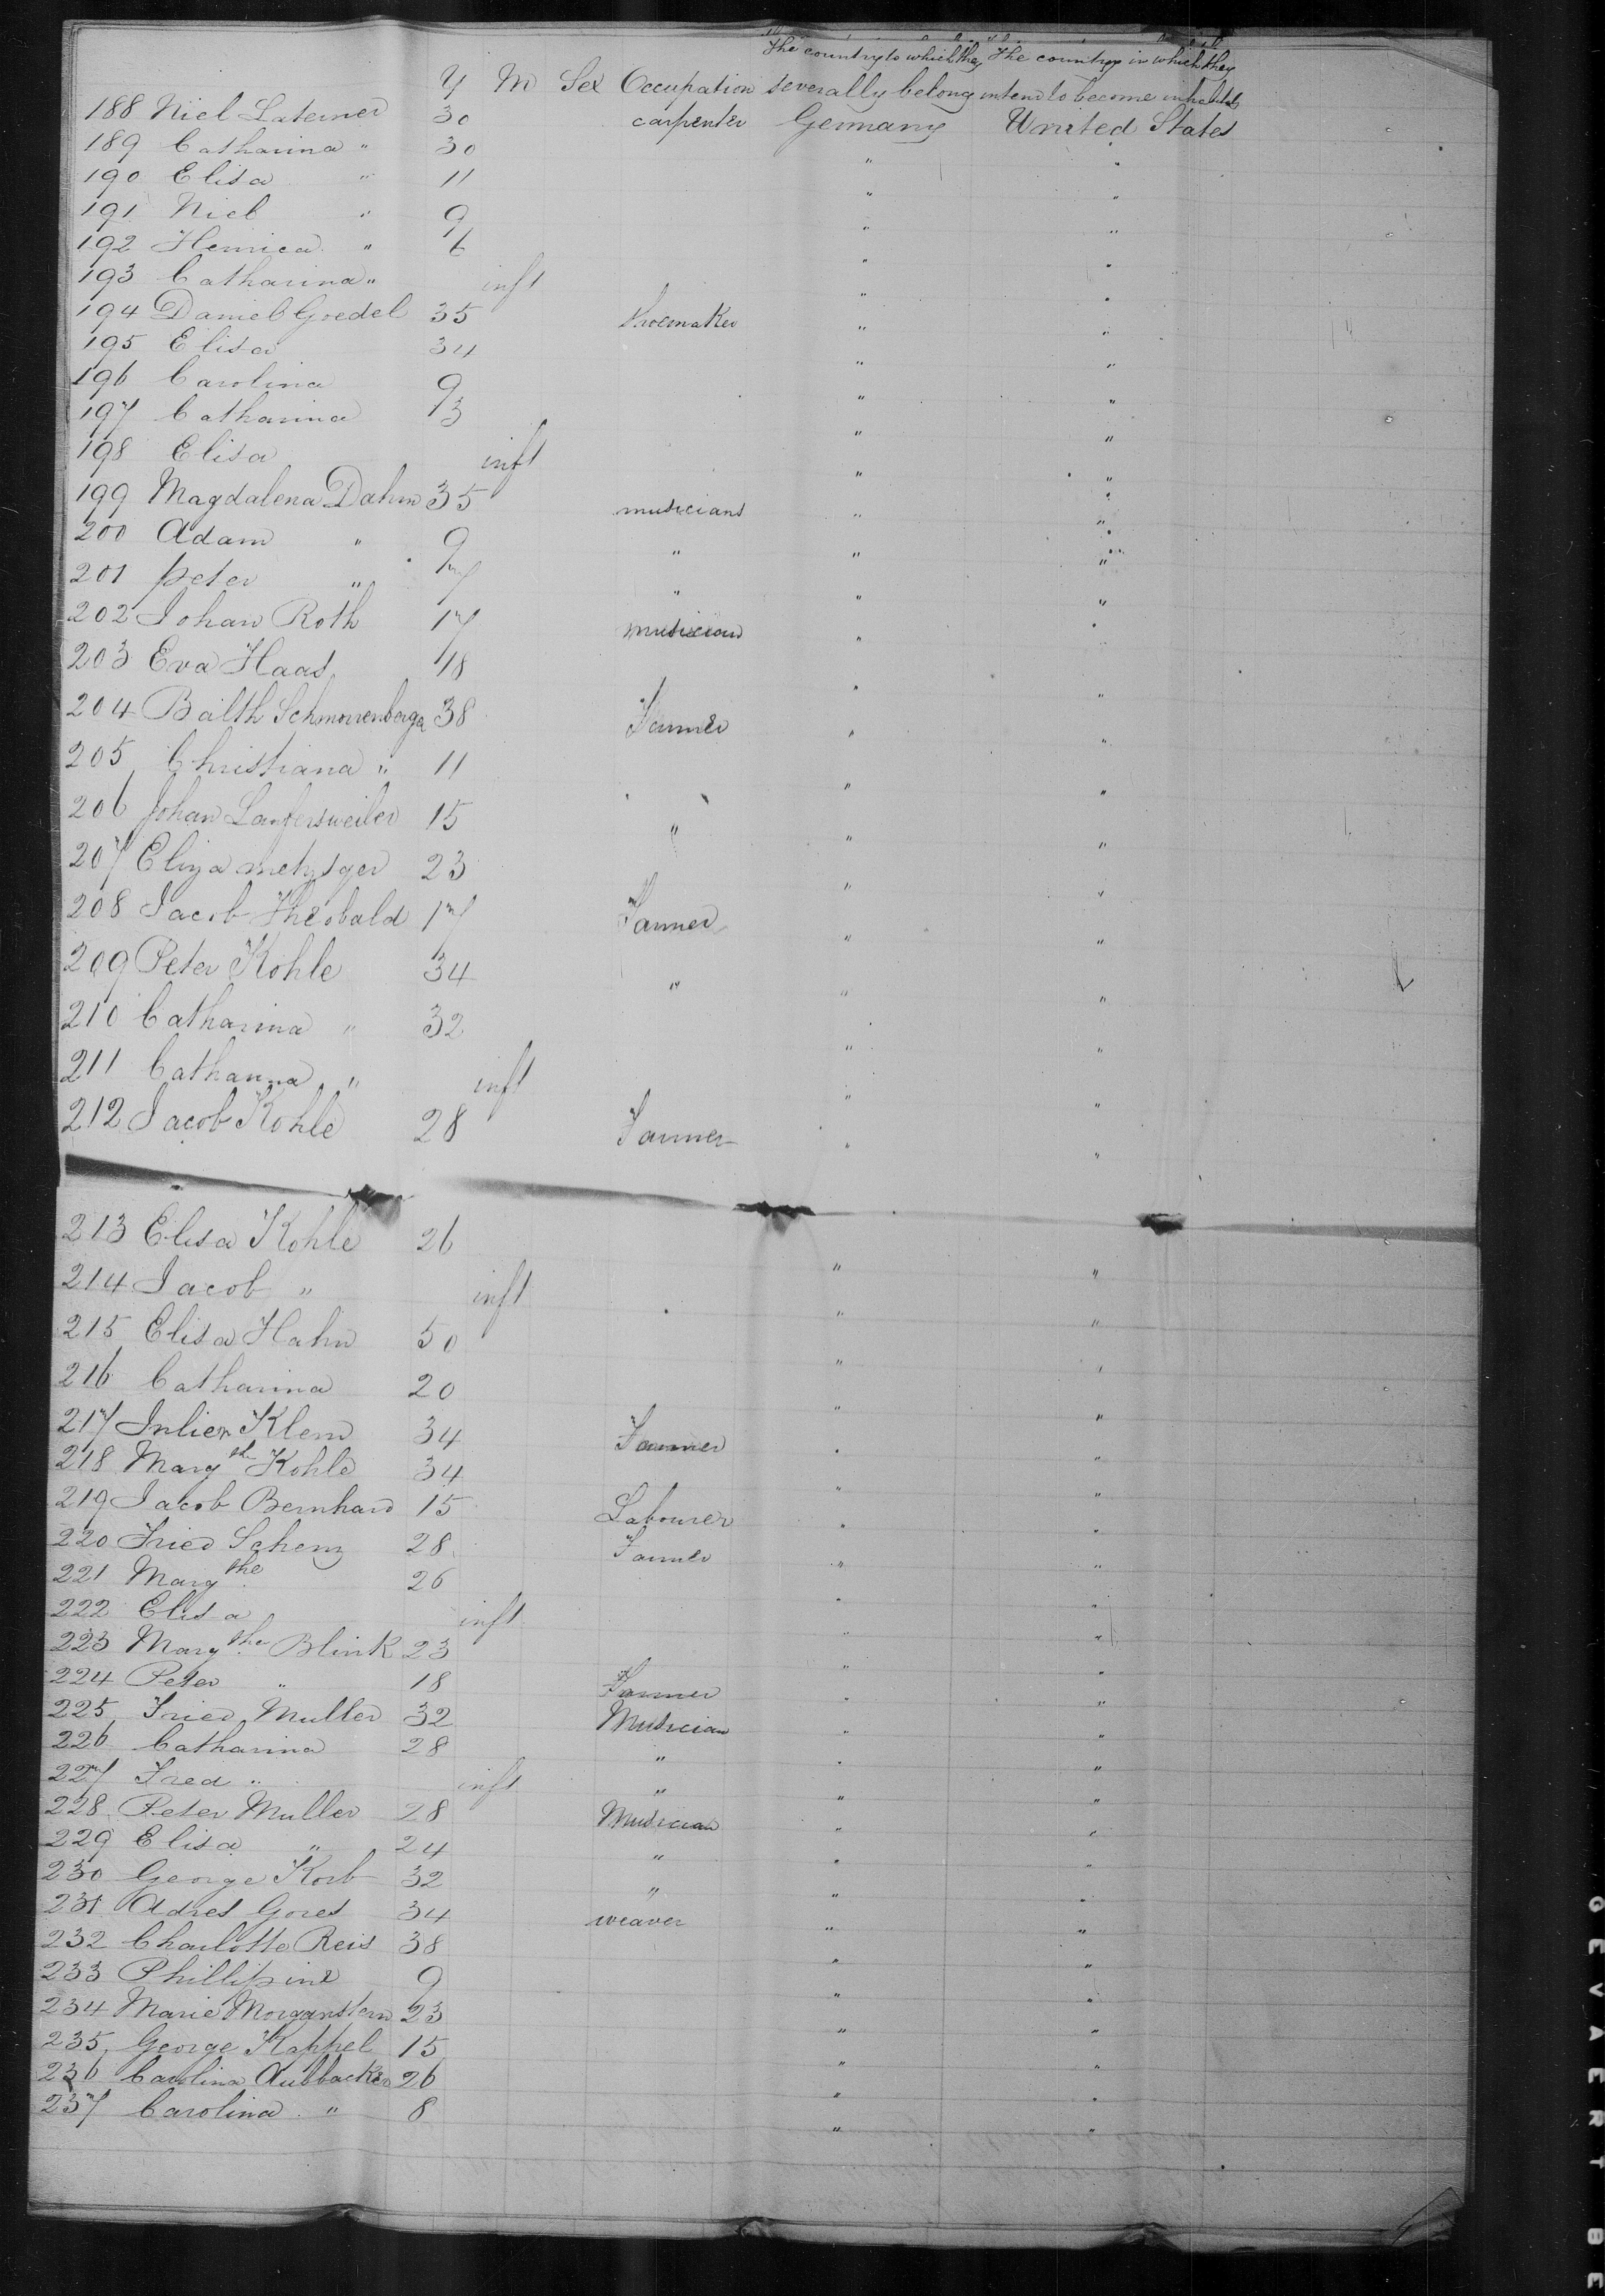 The country to which they The country in which they
Y M Sex Occupation severally belong intend to become inhabts
188 Niel Laterner 30 carpenter Germany United States
189 Catharina " 30 " "
190 Elisa " 11 " "
191 Niel " 9 " "
192 Henrica " 6 " "
193 Catharina " inft " "
194 Daniel Goedel 35 shoemaker " "
195 Elisa 34 " "
196 Carolina 9 " "
197 Catharina 3 " "
198 Elisa inft " "
199 Magdalena Dahm 35 musicians " "
200 Adam " 9 " " "
201 Peter " 7 " " "
202 Johan Roth 17 musician " "
203 Eva Haas 18 " "
204 Balth Schmorrenberger 38 Farmer " "
205 Christiana " 11 " "
206 Johan Laufersweiler 15 " " "
207 Eliza metzger 23 " "
208 Jacob Theobald 17 Farmer " "
209 Peter Kohle 34 " " "
210 Catharina " 32 " "
211 Catharina " inft " "
212 Jacob Kohle 28 Farmer " "
213 Elisa Kohle 26 " "
214 Jacob " inft " "
215 Elisa Hahn 50 " "
216 Catharina 20 " "
217 Klem 34 Farmer " "
218 Marg the Kohle 34 " "
219 Jacob Bernhard 15 Labourer " "
220 Fried Schenz 28 Farmer " "
221 Marg the 26 " "
222 Elisa inft " "
223 Marg the Blink 23 " "
224 Peter " 18 Farmer " "
225 Fried Muller 32 Musician " "
226 Catharina 28 " " "
227 Fred " inft " " "
228 Peter Muller 28 Musician " "
229 Elisa " 24 " " "
230 George Korb 32 " " "
231 Adres Gores 34 weaver " "
232 Charlotte Reis 38 " "
233 Phillipine 9 " "
234 Marie Morganstern 23 " "
235 George Kappel 15 " "
236 Carolina Aubbacker 26 " "
237 Carolina " 8 " "
GEVAERT BE